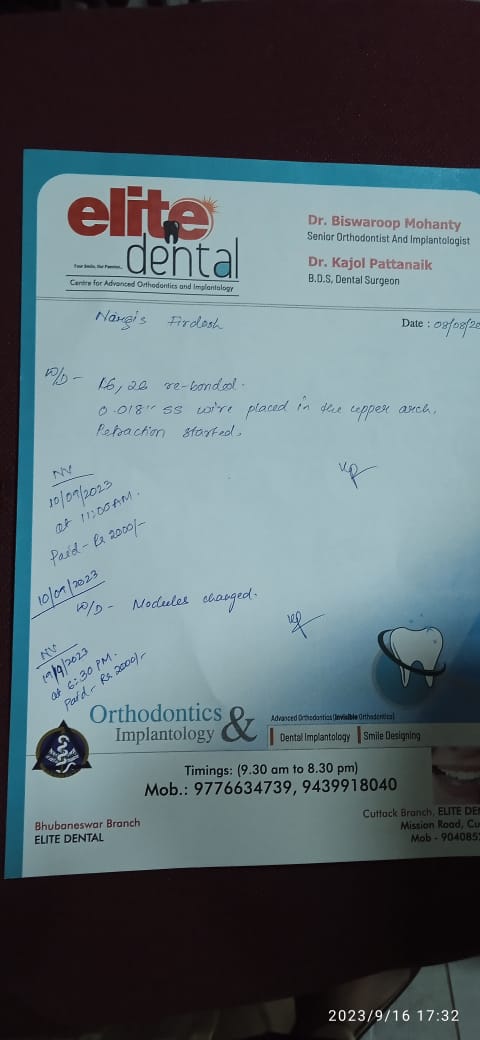 elite
dental
Your Smile, Our Passion...
Centre for Advanced Orthodontics and Implantology
Dr. Biswaroop Mohanty
Senior Orthodontist And Implantologist
Dr. Kajol Pattanaik
B.D.S, Dental Surgeon
Nargis Firdosh
Date : 08/08/20
W/D - 16, 26 re-bonded.
0.018" SS wire placed in the upper arch.
Retraction started.
NV
10/09/2023
at 11:00AM.
Paid - Rs 2000/-
10/09/2023
W/D - Modules changed.
NV
19/9/2023
at 6:30 PM.
Paid - Rs. 2000/-
Orthodontics &
Implantology
Advanced Orthodontics (Invisible Orthodontics)
Dental Implantology | Smile Designing
Timings: (9.30 am to 8.30 pm)
Mob.: 9776634739, 9439918040
Bhubaneswar Branch
ELITE DENTAL
Cuttack Branch, ELITE DE
Mission Road, Cu
Mob - 904085
2023/9/16 17:32